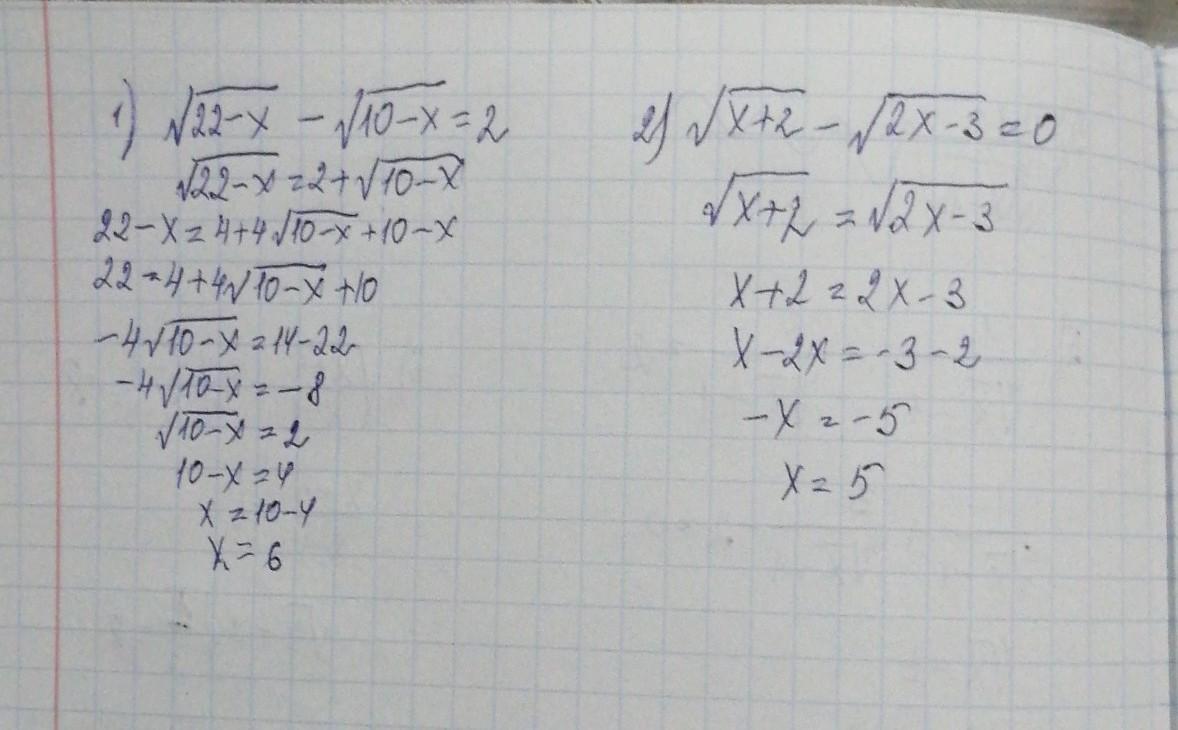 1) √22-x - √10-x = 2
√22-x = 2+√10-x
22-x = 4+4√10-x+10-x
22 = 4+4√10-x+10
-4√10-x = 14-22
-4√10-x = -8
√10-x = 2
10-x = 4
x = 10-4
x = 6
2) √x+2 - √2x-3 = 0
√x+2 = √2x-3
x+2 = 2x-3
x-2x = -3-2
-x = -5
x = 5